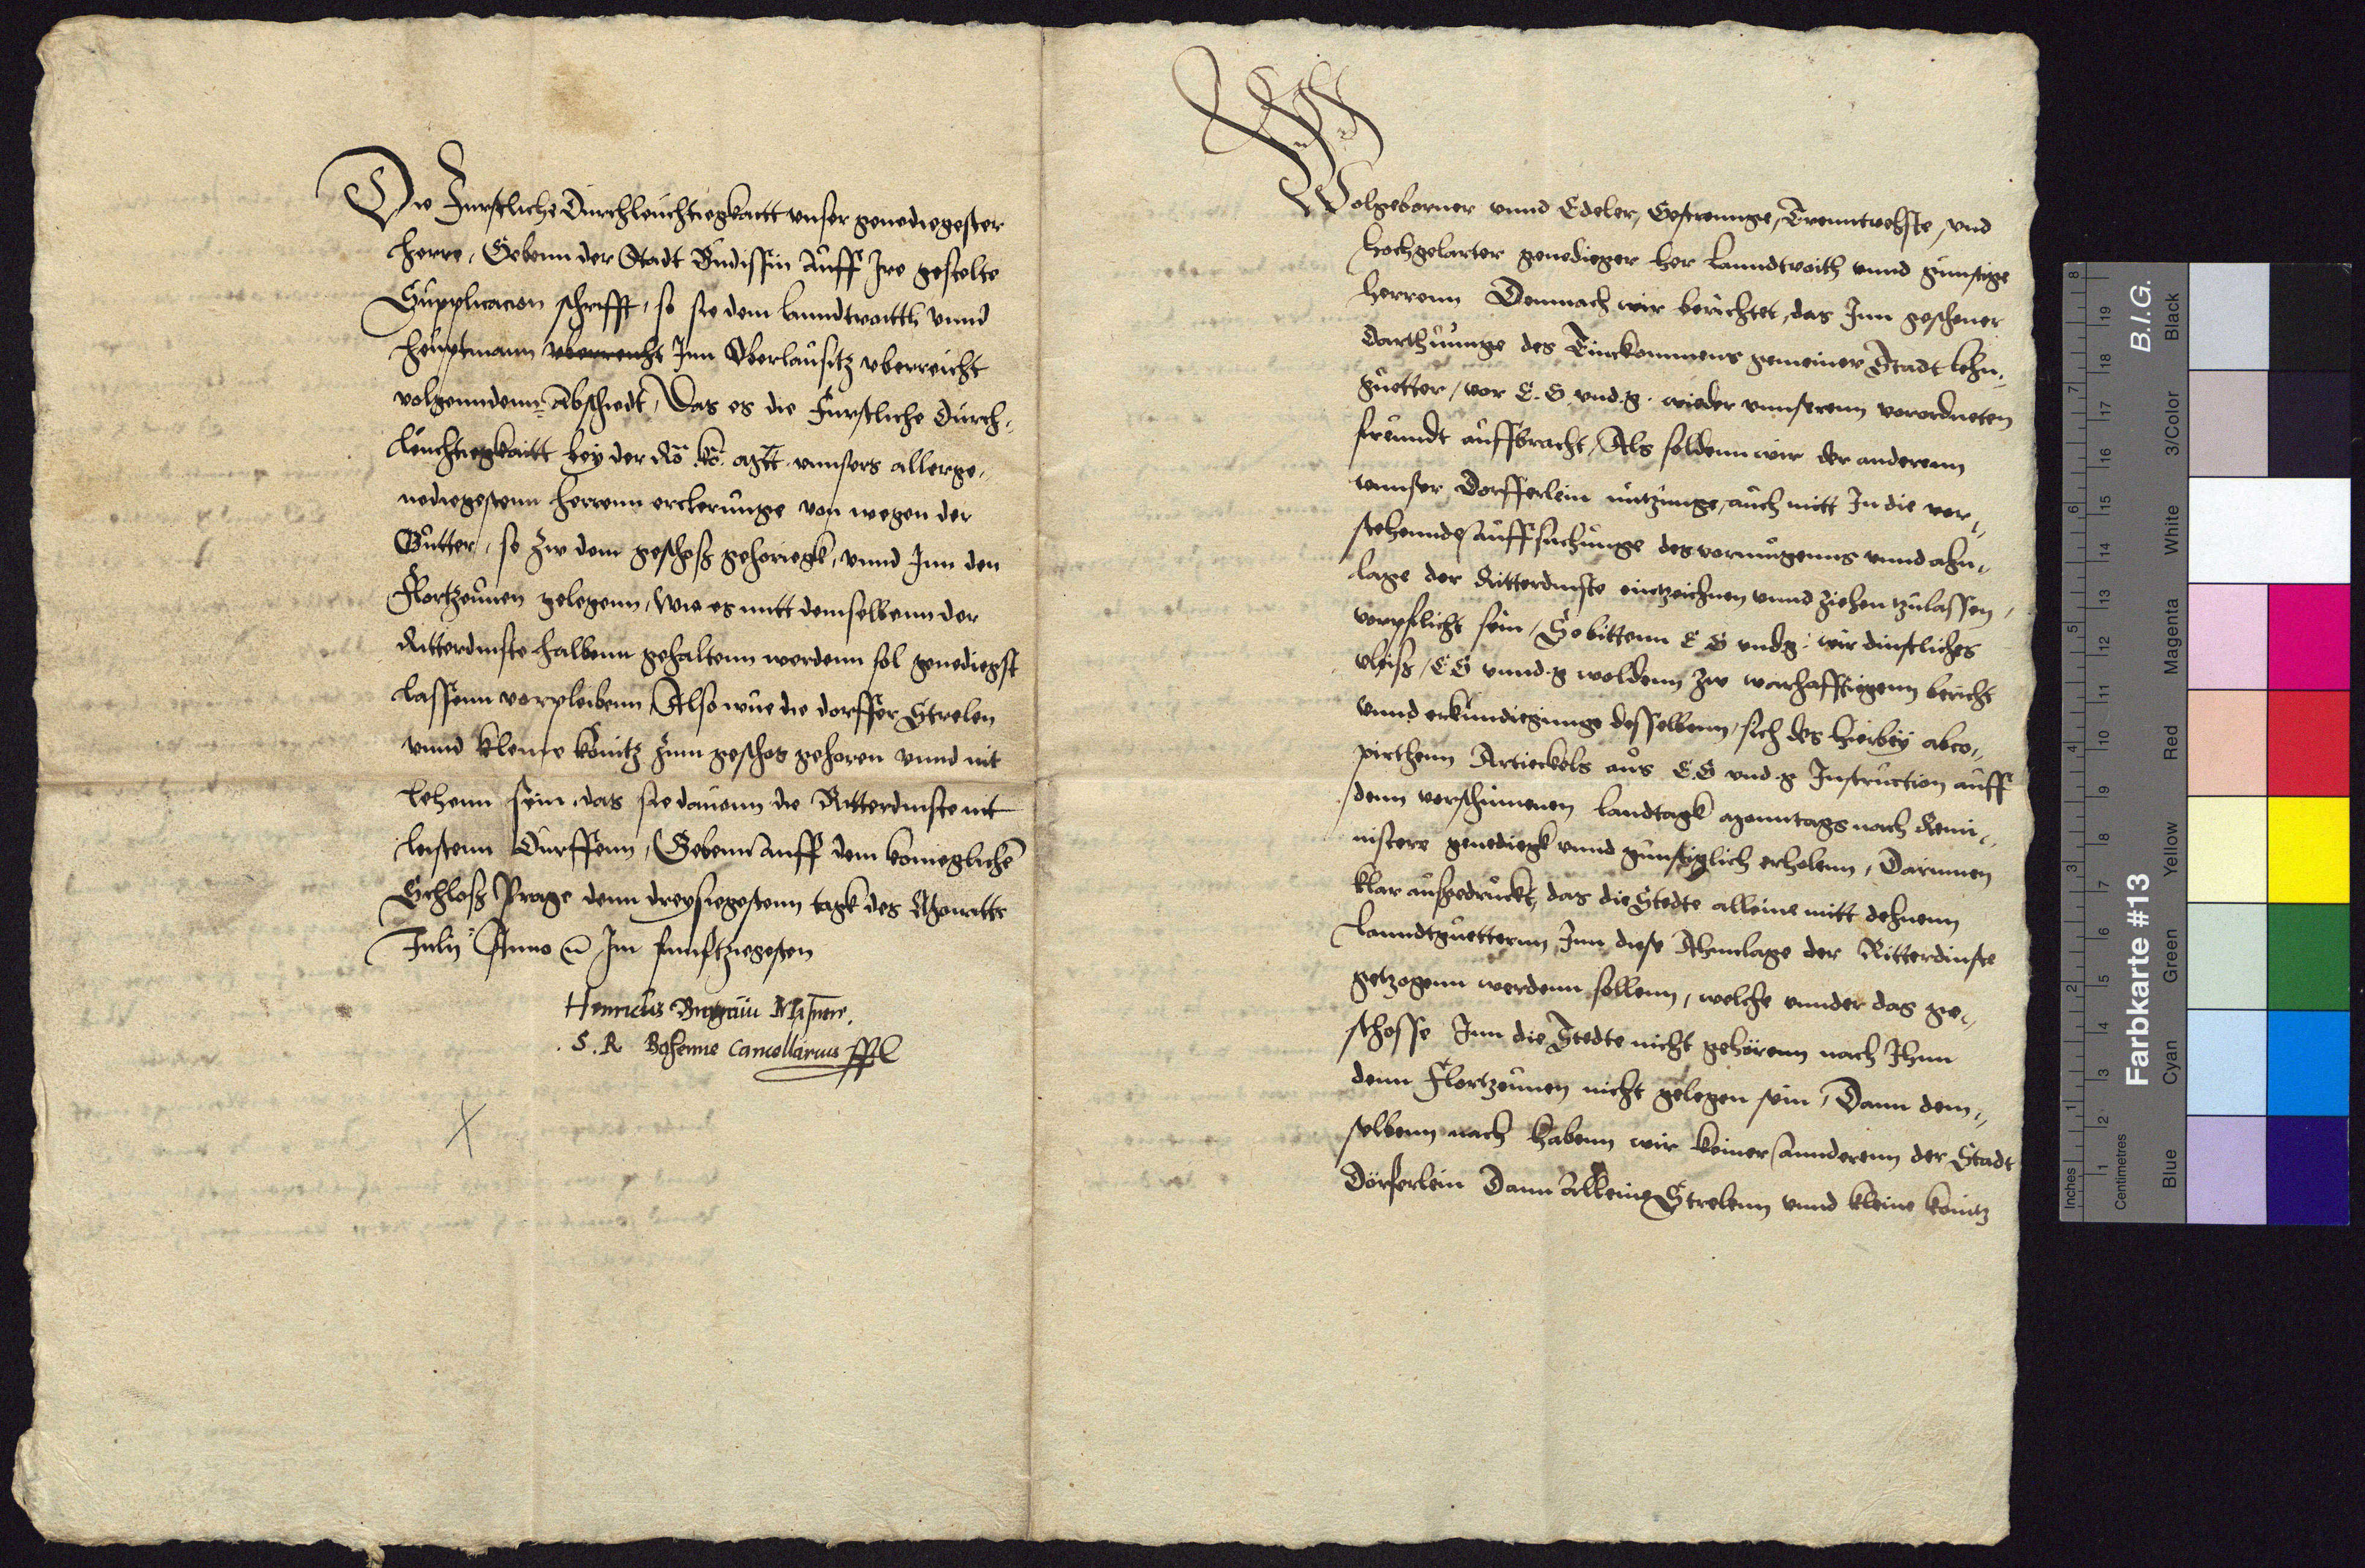 Die Furstliche Durchleuchtiegkaitt vnser genediegester
herre, Gebenn der Stadt Budissin Auff Ire gestelte
Supplicacion schrifft, so sie dem lanndtvoitth vnnd
heuptmann vberreicht Inn Oberlausitz vberreicht
volgenndenn Abschiedt, Das es die Furstliche Durch-
leuchtiegkaitt bey der Rö. kö. Mtt. vnnsers allerge-
nediegestenn herrenn erclerunge von wegen der
Gütter, so zw dem geschoß gehoriegk, vnnd Inn den
Flortzeunen gelegenn, wie es mitt demselbenn der
Ritterdinste halbenn gehaltenn werdenn sol genediegst
lassenn vorpleibenn Also wue die dorffer Strelen
vnnd kleine könitz zum geschos gehoren vnnd nit
lehenn sein, das sie dauonn die Ritterdinste nit
leistenn Durffenn, Gebenn auff dem konieglichen
Schloß Prage denn dreysiegestenn tagk des Monats
Julÿ Anno Im funftziegesten
Henricus Misnen.
S. R. Bohemie Cancellarius
Wolgeborner vnnd Edeler, Gestrennge, Erenntvehste, vnd
hochgelarter genedieger her lanndtvoith vnnd günstige
herrenn Demnach wir berichtet, das Inn geschener
darthuunge des Einckommens gemeiner Stadt lehn-
guetter, vor E. G. vnd. g. wieder vnnserenn vorordneten
freundt auffbracht, Als soldenn wir der anderenn
vnnser Dorfferlein nutzunge, auch mitt In die vor-
stehennde auffsuchunge des vormügenns vnnd ahn-
lage der Ritterdinste eintzeichnen vnnd ziehen tzulassen,
vorpflicht sein, So bittenn E G vnd g. wir dinstliches
vleiß, E G vnnd g woldenn zw warhafftigenn bericht
vnnd erkundiegunge desselbenn, sich des hierbeÿ abco-
pirthenn Artickels aus E. G vnd g Instruction auff
denn verschinenen landtagk Monntags nach Remi-
niscere genediegk vnnd günstiglich erholenn, Darinnen
klar außgedruckt, das die Stedte alleine mitt dehnenn
Lanndtguetternn Inn diese Ahnlage der Ritterdinste
getzogenn werdenn sollenn, welche vnnder das ge-
schosse Inn die Stedte nicht gehörenn nach Ihnn
denn Flortzeunen nicht gelegen sein, Dann dem-
selbenn nach habenn wir keiner annderenn der Stadt
Dörferlein Dann Alleine Strelenn vnnd kleine konitz
Inches
Centimetres
Farbkarte #13
B.I.G.
Blue
Cyan
Green
Yellow
Red
Magenta
White
3/Color
Black